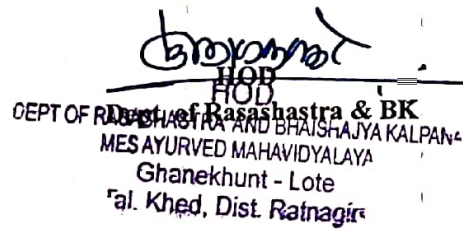 HOD
HOD
Dept. of Rasashastra & BK
DEPT OF RASASHASTRA AND BHAISHAJYA KALPANA
MES AYURVED MAHAVIDYALAYA
Ghanekhunt - Lote
Tal. Khed, Dist. Ratnagiri